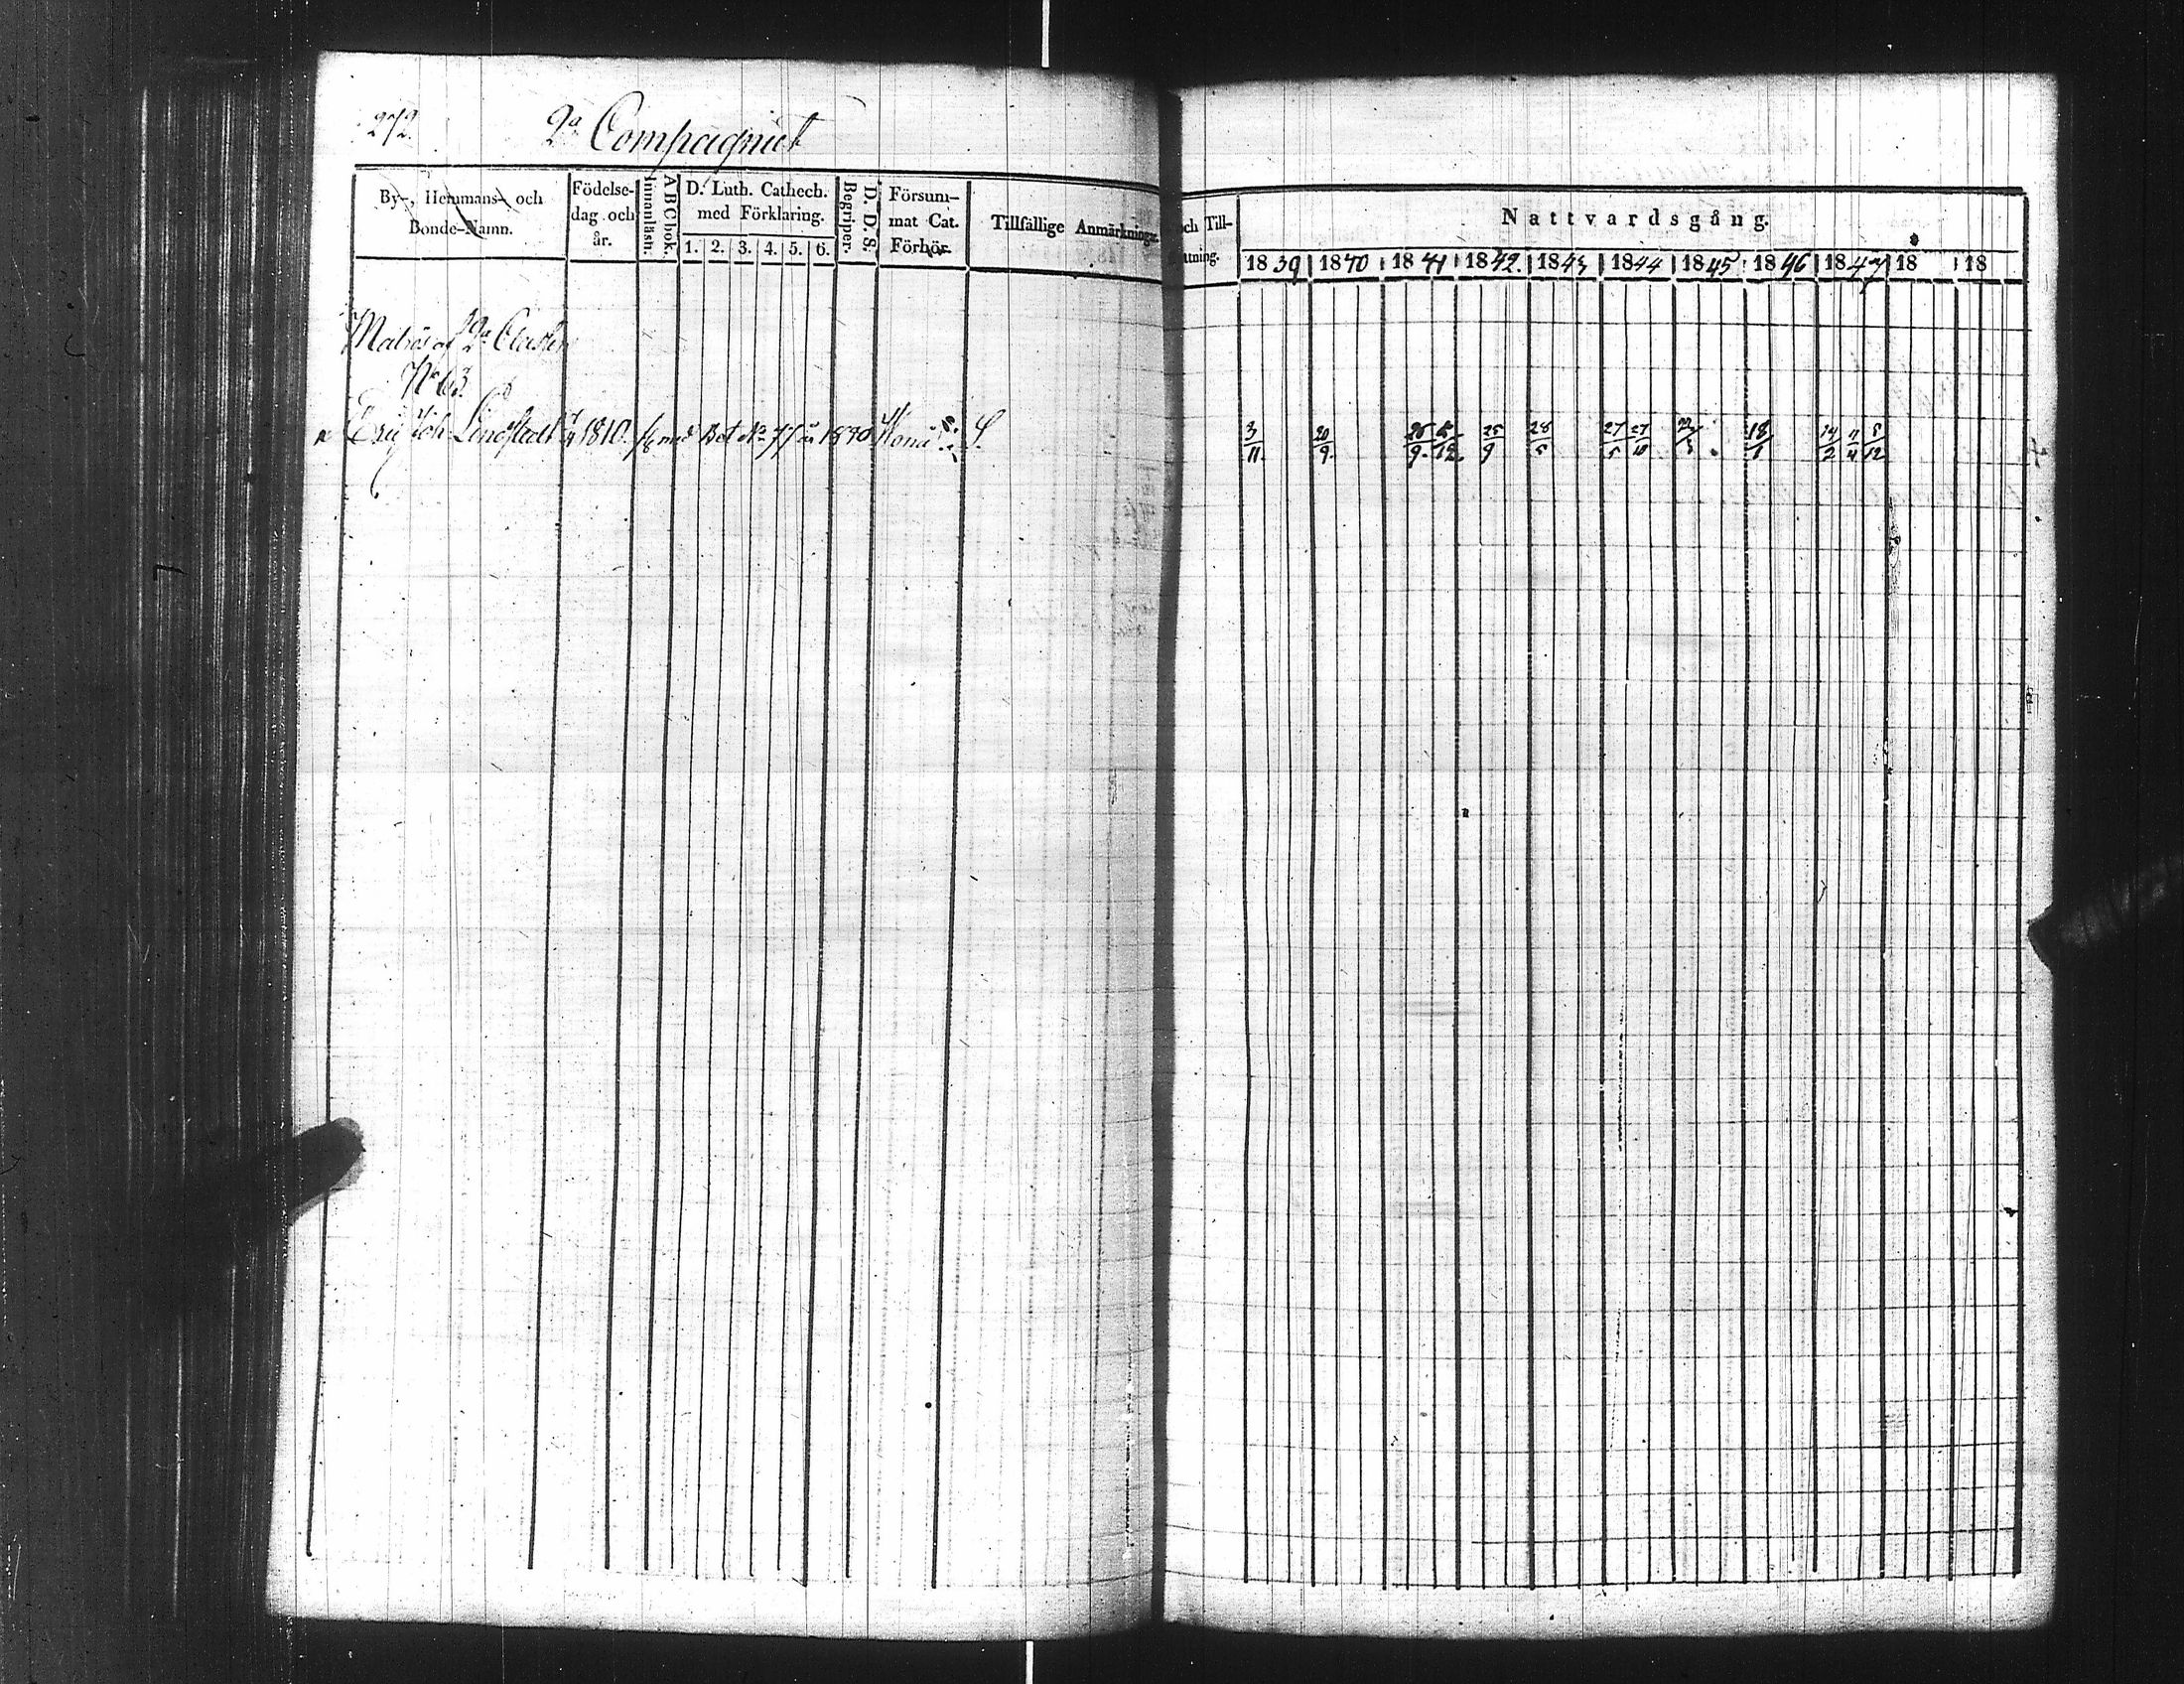 272.
2a Compagniet
By-, Hemmans- och Bonde-Namn.
Födelse-dag och år.
Innanläsn.
ABCbok.
D. Luth. Cathech. med Förklaring.
1. 2. 3. 4. 5. 6.
Begriper.
D. D. S.
Försum-mat Cat. Förhör.
Tillfällige Anmärkningar
och Till-
ttning.
Nattvardsgång.
1839 1840 1841 1842. 1843 1844 1845 1846 1847 18 18
Matros af 2a Classen
No 63
Eric Joh Lindstedt 1810. med Bet No 77 1840
3/11. 20/9. 26/9. 12. 25/9 28/5 27/5 27/10 18/1 14/2 4/4 5/12